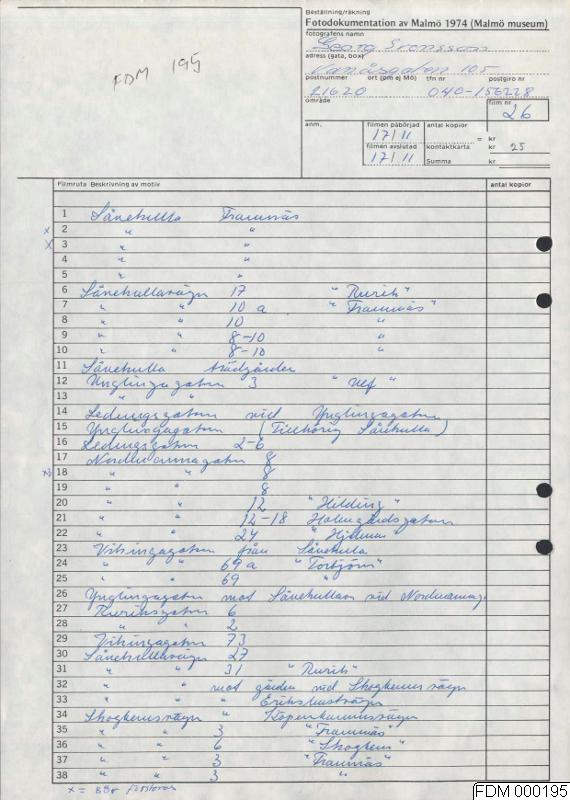 Beställning/räkning
Fotodokumentation av Malmö 1974 (Malmö museum)
fotografens namn
Georg Svensson
adress (gata, box)
Vanåsgatan 105
postnummer ort (om ej Mö) tfn nr postgiro nr
21620 040-156228
område film nr
26
anm. filmen påbörjad antal kopior
17/11 = kr
filmen avslutad kontaktkarta kr 25
17/11 Summa kr
FDM 195
Filmruta Beskrivning av motiv antal kopior
1 Sånekulla Framnäs
x 2 " "
x 3 " "
4 " "
5 " "
6 Sånekullavägen 17 "Rurik"
7 " " 10 a "Framnäs"
8 " " 10 "
9 " " 8-10 "
10 " " 8-10 "
11 Sånekulla trädgården
12 Ynglingagatan 3 "Ulf"
13 " "
14 Ledungsgatan vid Ynglingagatan
15 Ynglingagatan (Tillhörig Sånekulla)
16 Ledungsgatan 2-6
17 Nordmannagatan 8
x 18 " " 8
19 " " 8
20 " " 12 "Hilding"
21 " " 12-18 Holmgårdsgatan
22 " " 24 "Hjalmar"
23 Vikingagatan från Sånekulla
24 " " 69 a "Torbjörn"
25 " " 69 "
26 Ynglingagatan mot Sånekullav vid Nordmannag.
27 Ruriksgatan 6
28 " " 2
29 Vikingagatan 73
30 Sånekullavägen 27
31 " " 31 "Rurik"
32 " " mot gården vid Skoghemsvägen
33 " " " Erikslustvägen
34 Skoghemsvägen " Köpenhamnsvägen
35 " " 3 "Framnäs"
36 " " 6 "Skoghem"
37 " " 3 "Framnäs"
38 " " 3 "
x = bör förstoras
FDM 000195